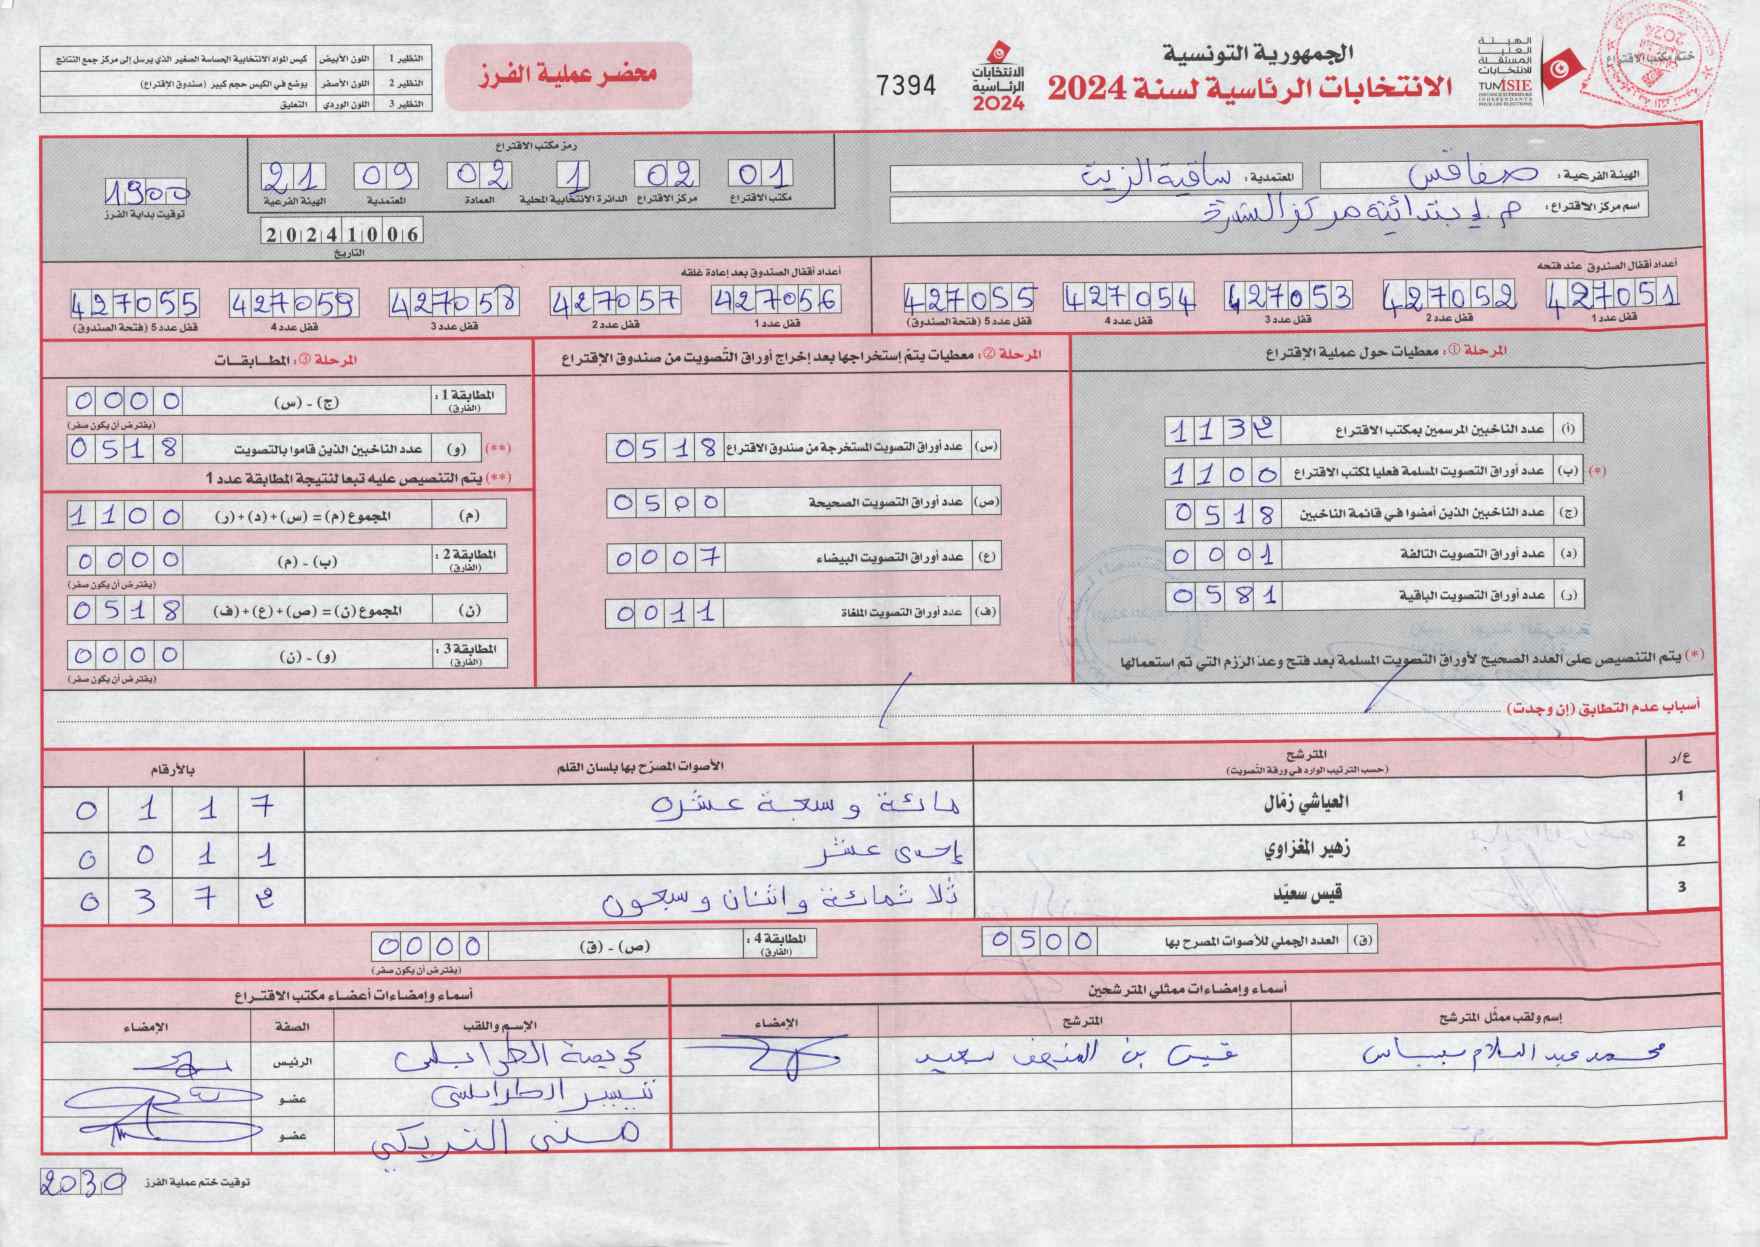 الجمهورية التونسية
الانتخابات الرئاسية لسنة 2024
الهيئة العليا المستقلة للانتخابات
TUNISIE
INSTANCE SUPERIEURE INDEPENDANTE POUR LES ELECTIONS
ختم مكتب الاقتراع
الانتخابات الرئاسية 2024
7394
محضر عملية الفرز
النظير 1 اللون الأبيض كيس المواد الانتخابية الحساسة الصغير الذي يرسل إلى مركز جمع النتائج
النظير 2 اللون الأصفر يوضع في الكيس حجم كبير (صندوق الاقتراع)
النظير 3 اللون الوردي التعليق
الهيئة الفرعية: صفاقس
المعتمدية: ساقية الزيت
اسم مركز الاقتراع: م. إبتدائية مركز
رمز مكتب الاقتراع
01 مكتب الاقتراع
02 مركز الاقتراع
1 الدائرة الانتخابية المحلية
02 العمادة
09 المعتمدية
21 الهيئة الفرعية
20241006
التاريخ
1900
توقيت بداية الفرز
أعداد أقفال الصندوق عند فتحه
427051 427052 427053 427054 427055
قفل عدد 1 قفل عدد 2 قفل عدد 3 قفل عدد 4 قفل عدد 5 (فتحة الصندوق)
أعداد أقفال الصندوق بعد إعادة غلقه
427056 427057 427058 427059 427055
قفل عدد 1 قفل عدد 2 قفل عدد 3 قفل عدد 4 قفل عدد 5 (فتحة الصندوق)
المرحلة ①: معطيات حول عملية الإقتراع
(أ) عدد الناخبين المرسمين بمكتب الاقتراع 1132
(*) (ب) عدد أوراق التصويت المسلمة فعليا لمكتب الاقتراع 1100
(ج) عدد الناخبين الذين أمضوا في قائمة الناخبين 0518
(د) عدد أوراق التصويت التالفة 0001
(ر) عدد أوراق التصويت الباقية 0581
(*) يتم التنصيص على العدد الصحيح لأوراق التصويت المسلمة بعد فتح وعدّ الرزم التي تم استعمالها
المرحلة ②: معطيات يتمّ إستخراجها بعد إخراج أوراق التّصويت من صندوق الإقتراع
(س) عدد أوراق التصويت المستخرجة من صندوق الاقتراع 0518
(ص) عدد أوراق التصويت الصحيحة 0500
(ع) عدد أوراق التصويت البيضاء 0007
(ف) عدد أوراق التصويت الملغاة 0011
المرحلة ③: المطابقات
المطابقة 1: (الفارق) (ج) - (س) 0000
(يفترض أن يكون صفر)
(**) (و) عدد الناخبين الذين قاموا بالتصويت 0518
(**) يتم التنصيص عليه تبعا لنتيجة المطابقة عدد 1
(م) المجموع (م) = (س)+(د)+(ر) 1100
المطابقة 2: (الفارق) (ب) - (م) 0000
(يفترض أن يكون صفر)
(ن) المجموع (ن) = (ص)+(ع)+(ف) 0518
المطابقة 3: (الفارق) (و) - (ن) 0000
(يفترض أن يكون صفر)
أسباب عدم التطابق (إن وجدت)
ع/ر المترشح (حسب الترتيب الوارد في ورقة التّصويت) الأصوات المصرّح بها بلسان القلم بالأرقام
1 العياشي زمّال مائة وسبعة عشرة 0117
2 زهير المغزاوي إحدى عشر 0011
3 قيس سعيّد ثلاثمائة واثنان وسبعون 0372
(ق) العدد الجملي للأصوات المصرح بها 0500
المطابقة 4: (الفارق) (ص) - (ق) 0000
(يفترض أن يكون صفر)
أسماء وإمضاءات ممثلي المترشحين
إسم ولقب ممثّل المترشح المترشح الإمضاء
محمد عبد السلام قيس بن المنصف سعيد
أسماء وإمضاءات أعضاء مكتب الاقتراع
الإسم واللقب الصفة الإمضاء
الطرابلسي الرئيس
تيسير الطرابلسي عضو
منى التريكي عضو
توقيت ختم عملية الفرز 2030